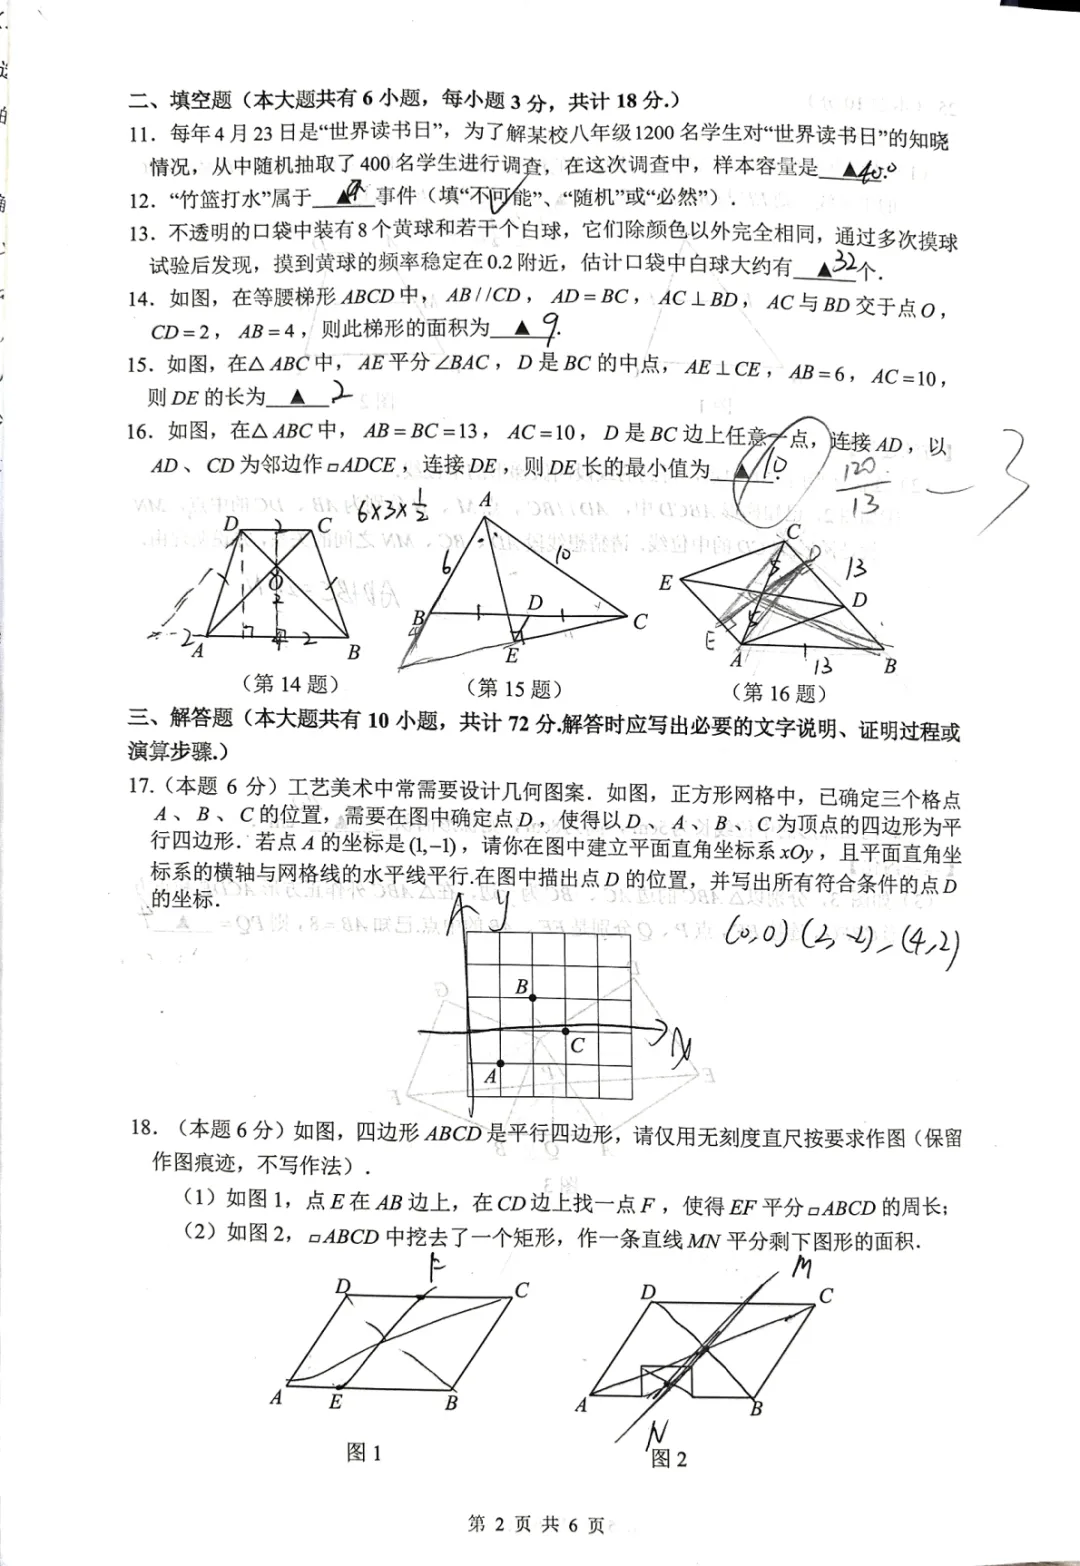 二、填空题（本大题共有 6 小题，每小题 3 分，共计 18 分.）
11．每年 4 月 23 日是“世界读书日”，为了解某校八年级 1200 名学生对“世界读书日”的知晓
情况，从中随机抽取了 400 名学生进行调查，在这次调查中，样本容量是 ▲ 400
12．“竹篮打水”属于 ▲ 事件（填“不可能”、“随机”或“必然”）.
13．不透明的口袋中装有 8 个黄球和若干个白球，它们除颜色以外完全相同，通过多次摸球
试验后发现，摸到黄球的频率稳定在 0.2 附近，估计口袋中白球大约有 ▲ 32 个.
14．如图，在等腰梯形 ABCD 中，AB//CD，AD=BC，AC⊥BD，AC 与 BD 交于点 O，
CD=2，AB=4，则此梯形的面积为 ▲ 9.
15．如图，在△ABC 中，AE 平分∠BAC，D 是 BC 的中点，AE⊥CE，AB=6，AC=10，
则 DE 的长为 ▲ 2
16．如图，在△ABC 中，AB=BC=13，AC=10，D 是 BC 边上任意一点，连接 AD，以
AD、CD 为邻边作▱ADCE，连接 DE，则 DE 长的最小值为 ▲ 10. 120/13 -3
6×3×1/2
D 2 C
2
A 2 4 2 B
A
6 10
B D C
4
E
C
E 5 D 13
D
E 5
A 13 B
（第 14 题）
（第 15 题）
（第 16 题）
三、解答题（本大题共有 10 小题，共计 72 分.解答时应写出必要的文字说明、证明过程或
演算步骤.）
17.（本题 6 分）工艺美术中常需要设计几何图案．如图，正方形网格中，已确定三个格点
A、B、C 的位置，需要在图中确定点 D，使得以 D、A、B、C 为顶点的四边形为平
行四边形．若点 A 的坐标是 (1,−1)，请你在图中建立平面直角坐标系 xOy，且平面直角坐
标系的横轴与网格线的水平线平行.在图中描出点 D 的位置，并写出所有符合条件的点 D
的坐标.
y
(0,0) (2,-2), (4,2)
B
C
x
A
18．（本题 6 分）如图，四边形 ABCD 是平行四边形，请仅用无刻度直尺按要求作图（保留
作图痕迹，不写作法）.
（1）如图 1，点 E 在 AB 边上，在 CD 边上找一点 F，使得 EF 平分▱ABCD 的周长；
（2）如图 2，▱ABCD 中挖去了一个矩形，作一条直线 MN 平分剩下图形的面积.
F
M
D C
D C
A E B
A B
N
图 1
图 2
第 2 页 共 6 页